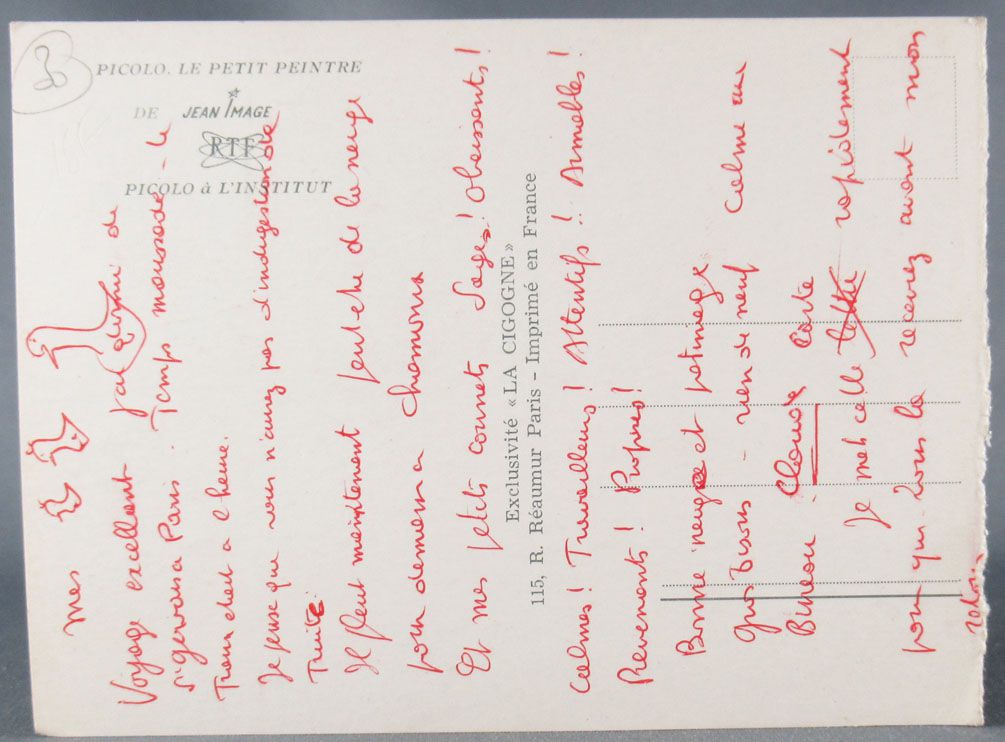 PICOLO. LE PETIT PEINTRE
DE JEAN IMAGE
RTF
PICOLO à L'INSTITUT
Exclusivité « LA CIGOGNE »
115, R. Réaumur Paris - Imprimé en France
Mes
Voyage excellent j'ai dormi de
St gervais a Paris. Temps maussade - le
Train etait a l'heure.
Je pense que vous n'aurez pas d'indigestion de
Truite.
Il pleut maintenant peut etre de la neige
pour demain a chamonix
Et mes petits cornets Sages! Obeissants!
Calmes! Travailleurs! Attentifs!! Aimables!
Prevenants! Propres!
Bonne neige et patinage
gros bisous - rien de neuf calme au
Bureau carte
Je mets celle lettre rapidement
pour que vous la recevez avant mon
retour